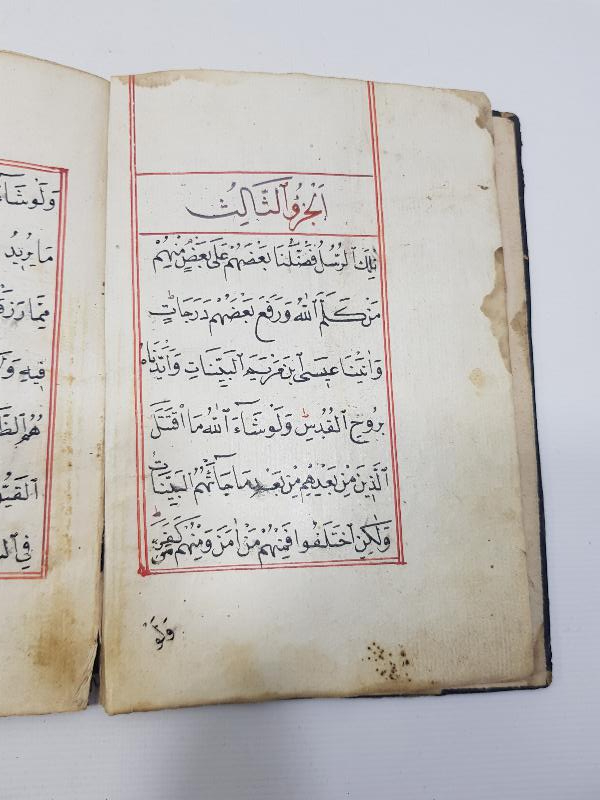 الجزؤ الثالث
تلك الرسل فضلنا بعضهم على بعض منهم
من كلم الله ورفع بعضهم درجات
واتينا عيسى ابن مريم البينات وايدناه
بروح القدس ولو شاء الله ما اقتتل
الذين من بعدهم من بعد ما جاتهم البينات
ولكن اختلفوا فمنهم من امن ومنهم من كفر
ولو
ولو شاء
ما يريد
مما رزق
فيه ولا
هم الظ
القيو
في ال